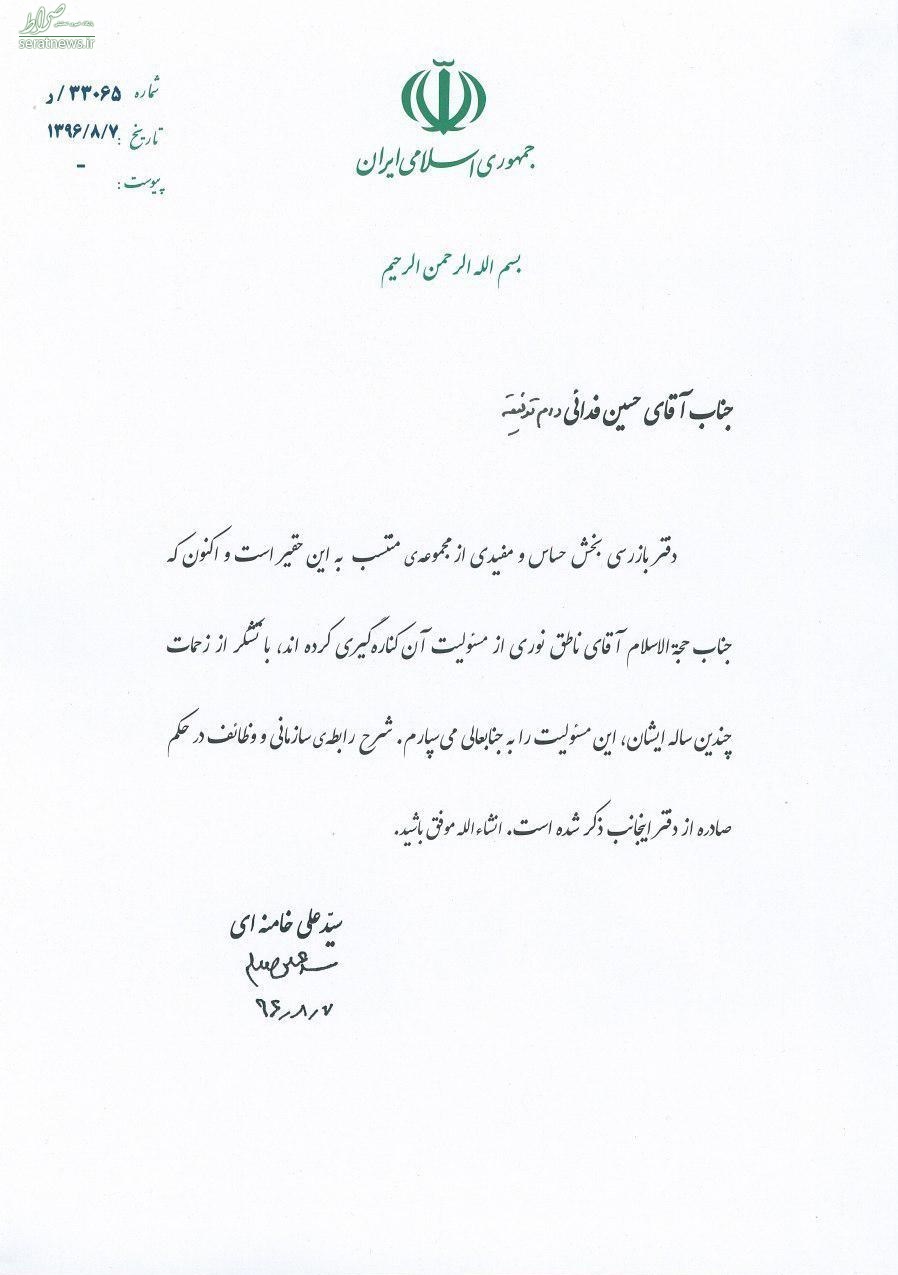 صراط
seratnews.ir
شماره ۳۳۰۶۵/د
تاریخ: ۱۳۹۶/۸/۷
پیوست: -
جمهوری اسلامی ایران
بسم الله الرحمن الرحیم
جناب آقای حسین فدائی دام توفیقه
دفتر بازرسی بخش حساس و مفیدی از مجموعه‌ی منتسب به این حقیر است و اکنون که
جناب حجة‌الاسلام آقای ناطق نوری از مسئولیت آن کناره‌گیری کرده اند، با تشکر از زحمات
چندین ساله ایشان، این مسئولیت را به جنابعالی می‌سپارم. شرح رابطه‌ی سازمانی و وظائف در حکم
صادره از دفتر اینجانب ذکر شده است. انشاءالله موفق باشید.
سیّد علی خامنه ای
۹۶٫۸٫۷